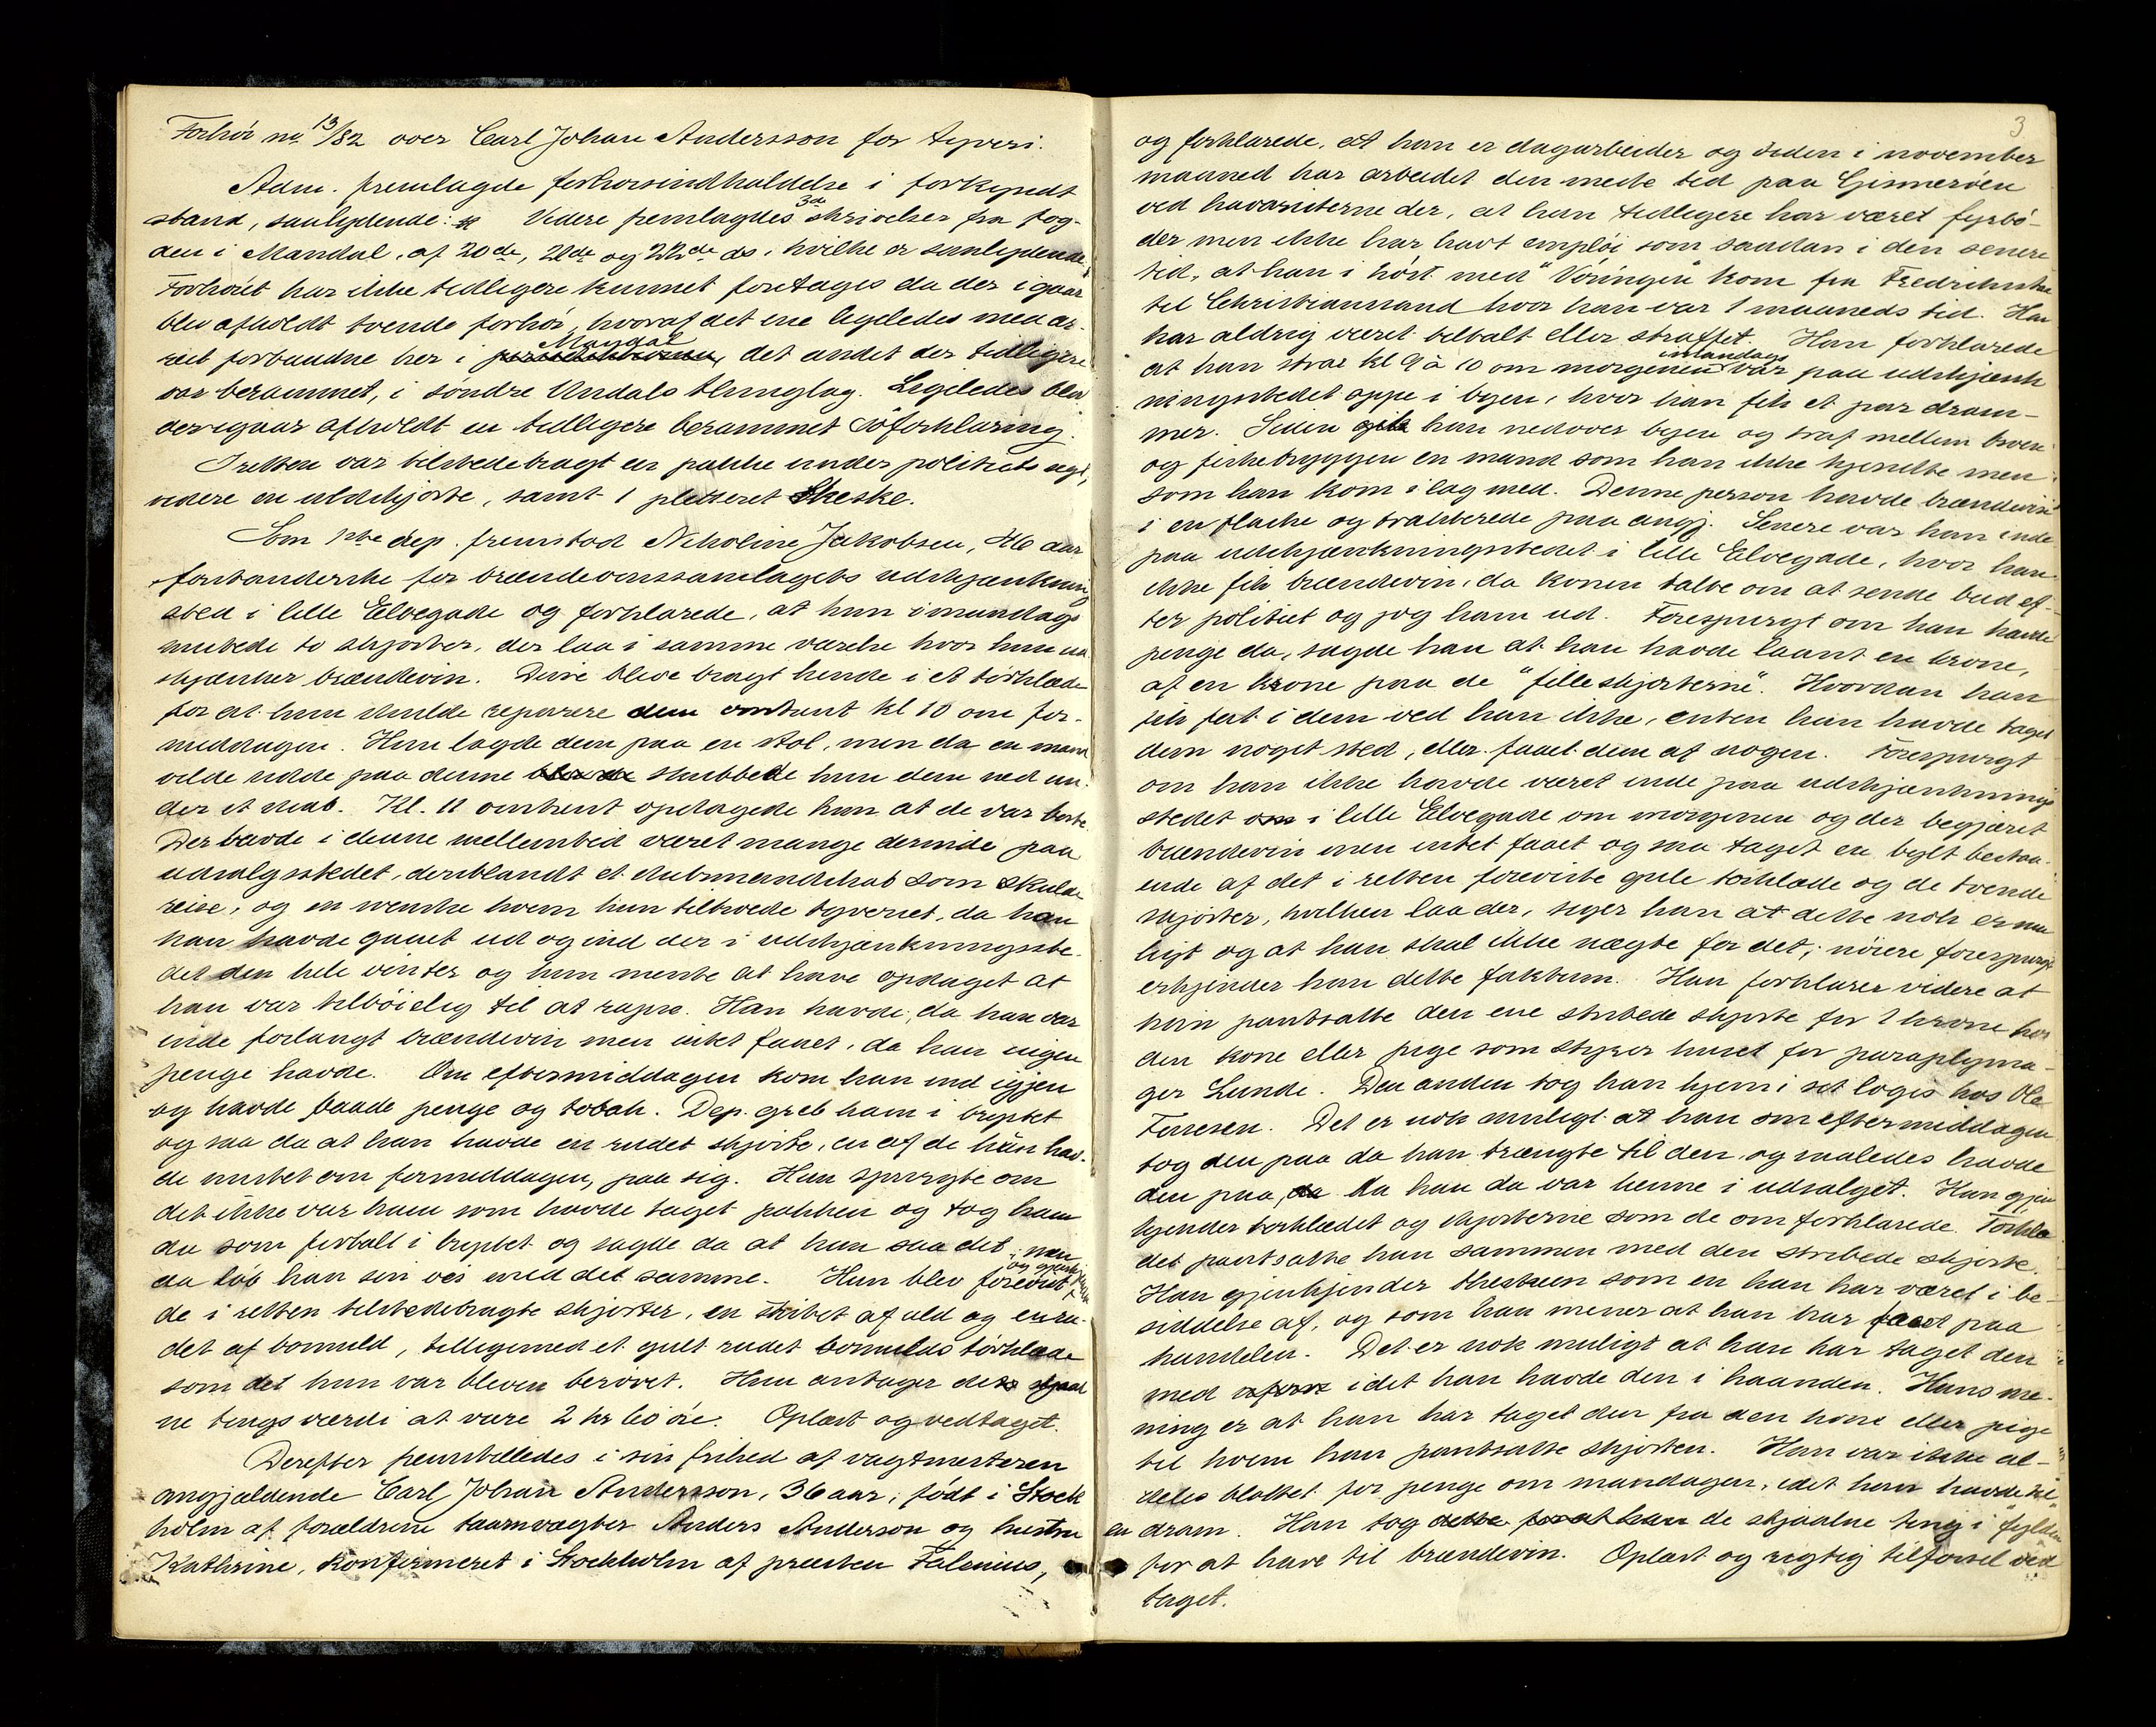 Forhör no 13/82 over Carl Johan Andersson for tyveri.
Adm. fremlagde forhörsindkaldelse i forkyndt
stand, saalydende: Videre fremlagdes 3de skrivelser fra fog-
den i Mandal, af 20de, 21de og 22de ds, hvilke er saalydende,
Forhöret har ikke tidligere kunnet foretages da der igaar
blev afholdt tvende forhör, hvoraf det ene ligeledes med ar-
rest forbundne her i Mandal det andet der tidligere
var berammet, i söndre Undals thinglag. Ligeledes blev
der igaar afholdt en tidligere berammet söforklaring.
I retten var tilstedebragt en pakke under politiets segl,
videre en uldskjorte, samt 1 pletteret Theske.
Som 1ste dep. fremstod Nikoline Jakobsen, 46 aar
forstanderske for brændevinssamlagets udskjænknings
sted i lille Elvegade og forklarede, at hun i mandags
mistede to skjorter, der laa i samme værelse hvor hun ud-
skjænker brændevin. Disse bleve bragt hende i et törklæde
for at hun skulde reparere dem omtrent kl 10 om for-
middagen. Hun lagde dem paa en stol, men da en mand
vilde sidde paa denne skubbede hun dem ned un-
der et skab. Kl. 11 omtrent opdagede hun at de var borte.
Der havde i denne mellemtid været mange derinde paa
udsalgsstedet, deriblandt et skibsmandskab som skulde
reise, og en svenske hvem hun tiltroede tyveriet, da han
han havde gaaet ud og ind der i udskjænkningsste-
det den hele vinter og hun mente at have opdaget at
han var tilböielig til at rapse. Han havde, da han var
inde forlangt brændevin men intet faaet, da han ingen
penge havde. Om eftermiddagen kom han ind igjen
og havde baade penge og tobak. Dep. greb ham i brystet
og saa da at han havde en rudet skjorte, en af de hun hav-
de mistet om formiddagen, paa sig. Hun spurgte om
det ikke var ham som havde taget pakken og tog ham
da som fortalt i brystet og sagde da at hun saa det, men
da löb han sin vei med det samme. Hun blev forevist
de i retten tilstedebragte skjorter, en stribet af uld og en ru-
det af bomuld, tilligemed et gult rudet bomulds törklæde
som det hun var bleven berövet. Hun antager de stjaal
ne tings værdi at være 2 kr 60 öre. Oplæst og vedtaget.
Derefter fremstilledes i sin frihed af vagtmesteren
angjældende Carl Johan Andersson, 36 aar, födt i Stock
holm af forældrene taarnvægter Anders Anderson og hustru
Kathrine, konfirmeret i Stockholm af præsten Falenius,
3
og forklarede, at han er dagarbeider og siden i november
maaned har arbeidet den meste tid paa Gismeröen
ved havaristerne der, at han tidligere har været fyrbö-
der men ikke har havt empløi som saadan i den senere
tid, at han i höst med "Vöringen" kom fra Fredrikssta
til Christianssand hvor han var 1 maaneds tid. Han
har aldrig været tiltalt eller straffet. Han forklarede
at han strax kl 9 à 10 om morgenen imandags var paa udskjænk
ningsstedet oppe i byen, hvor han fik et par dram-
mer. Siden gik han nedover byen og traf mellem broen
og fiskebryggen en mand som han ikke kjendte men
som han kom i lag med. Denne person havde brændevin
i en flaske og trakterede paa angj. Senere var han inde
paa udskjænkningsstedet i lille Elvegade, hvor han
ikke fik brændevin, da konen talte om at sende bud ef-
ter politiet og jog ham ud. Forespurgt om han havde
penge da, sagde han at han havde laant en krone,
af en kone paa de "filleskjorterne". Hvordan han
fik fat i dem ved han ikke, enten han havde taget
dem noget sted, eller faaet dem af nogen. Forespurgt
om han ikke havde været inde paa udskjænknings
stedet i lille Elvegade om morgenen og der begjæret
brændevin men intet faaet og saa taget en bylt bestaa-
ende af det i retten foreviste gule törklæde og de tvende
skjorter, hvilken laa der, siger han at dette nok er mu
ligt og at han skal ikke nægte for det; nöiere forespurgt
erkjender han dette faktum. Han forklarer videre at
han pantsatte den ene stribede skjorte for 1 krone hos
den kone eller pige som styrer huset for paraplyma-
ger Lunde. Den anden tog han hjem i sit logis hos Ole
Terresen. Det er nok muligt at han om eftermiddagen
tog den paa da han trængte til den og saaledes havde
den paa, da han da var henne i udsalget. Han gjen
kjender törklædet og skjorterne som de om forklarede. Törklæ
det pantsatte han sammen med den stribede skjorte.
Han gjenkjender theskeen som en han har været i be-
siddelse af, og som han mener at han har faaet paa
handelen. Det er nok muligt at han har taget den
med idet han havde den i haanden. Hans me-
ning er at han har taget den fra den kone eller pige
til hvem han pantsatte skjorten. Han var ikke al-
deles blottet for penge om mandagen, idet han havde til
en dram. Han tog de stjaalne ting i "fylden"
for at have til brændevin. Oplæst og rigtig tilförsel ved
taget.